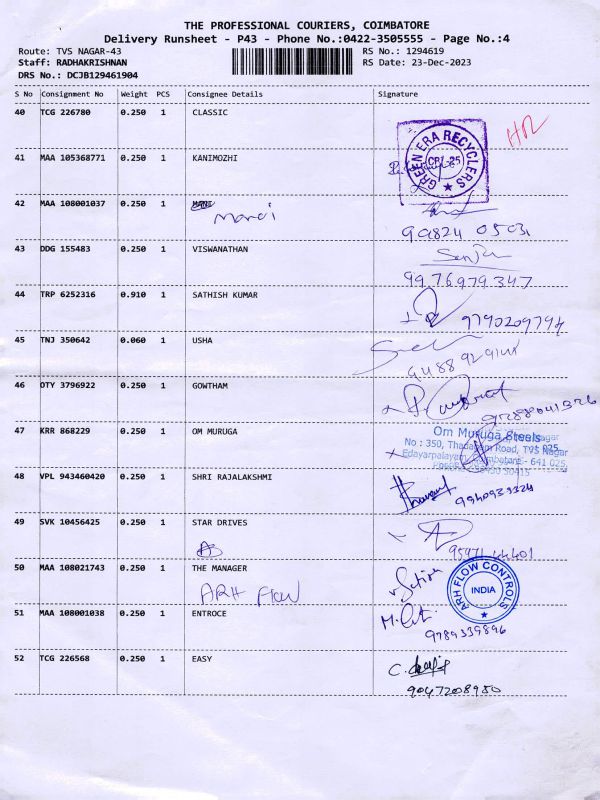 THE PROFESSIONAL COURIERS, COIMBATORE
Delivery Runsheet - P43 - Phone No.:0422-3505555 - Page No.:4
Route: TVS NAGAR-43 RS No.: 1294619
Staff: RADHAKRISHNAN RS Date: 23-Dec-2023
DRS No.: DCJB129461904
S No Consignment No Weight PCS Consignee Details Signature
40 TCG 226780 0.250 1 CLASSIC
GREEN ERA RECYCLERS
CBE-25
41 MAA 105368771 0.250 1 KANIMOZHI
42 MAA 108001037 0.250 1 MANI
43 DDG 155483 0.250 1 VISWANATHAN
9976979347
44 TRP 6252316 0.910 1 SATHISH KUMAR
9790209794
45 TNJ 350642 0.060 1 USHA
46 OTY 3796922 0.250 1 GOWTHAM
47 KRR 868229 0.250 1 OM MURUGA
Om Muruga Steels
No : 350, Thadagam Road, TVS Nagar
Edayarpalayam, Coimbatore - 641 025.
48 VPL 943460420 0.250 1 SHRI RAJALAKSHMI
9940933324
49 SVK 10456425 0.250 1 STAR DRIVES
95971 44401
50 MAA 108021743 0.250 1 THE MANAGER
ARH Flow
ARH FLOW CONTROLS
INDIA
51 MAA 108001038 0.250 1 ENTROCE
9789339896
52 TCG 226568 0.250 1 EASY
9047208950